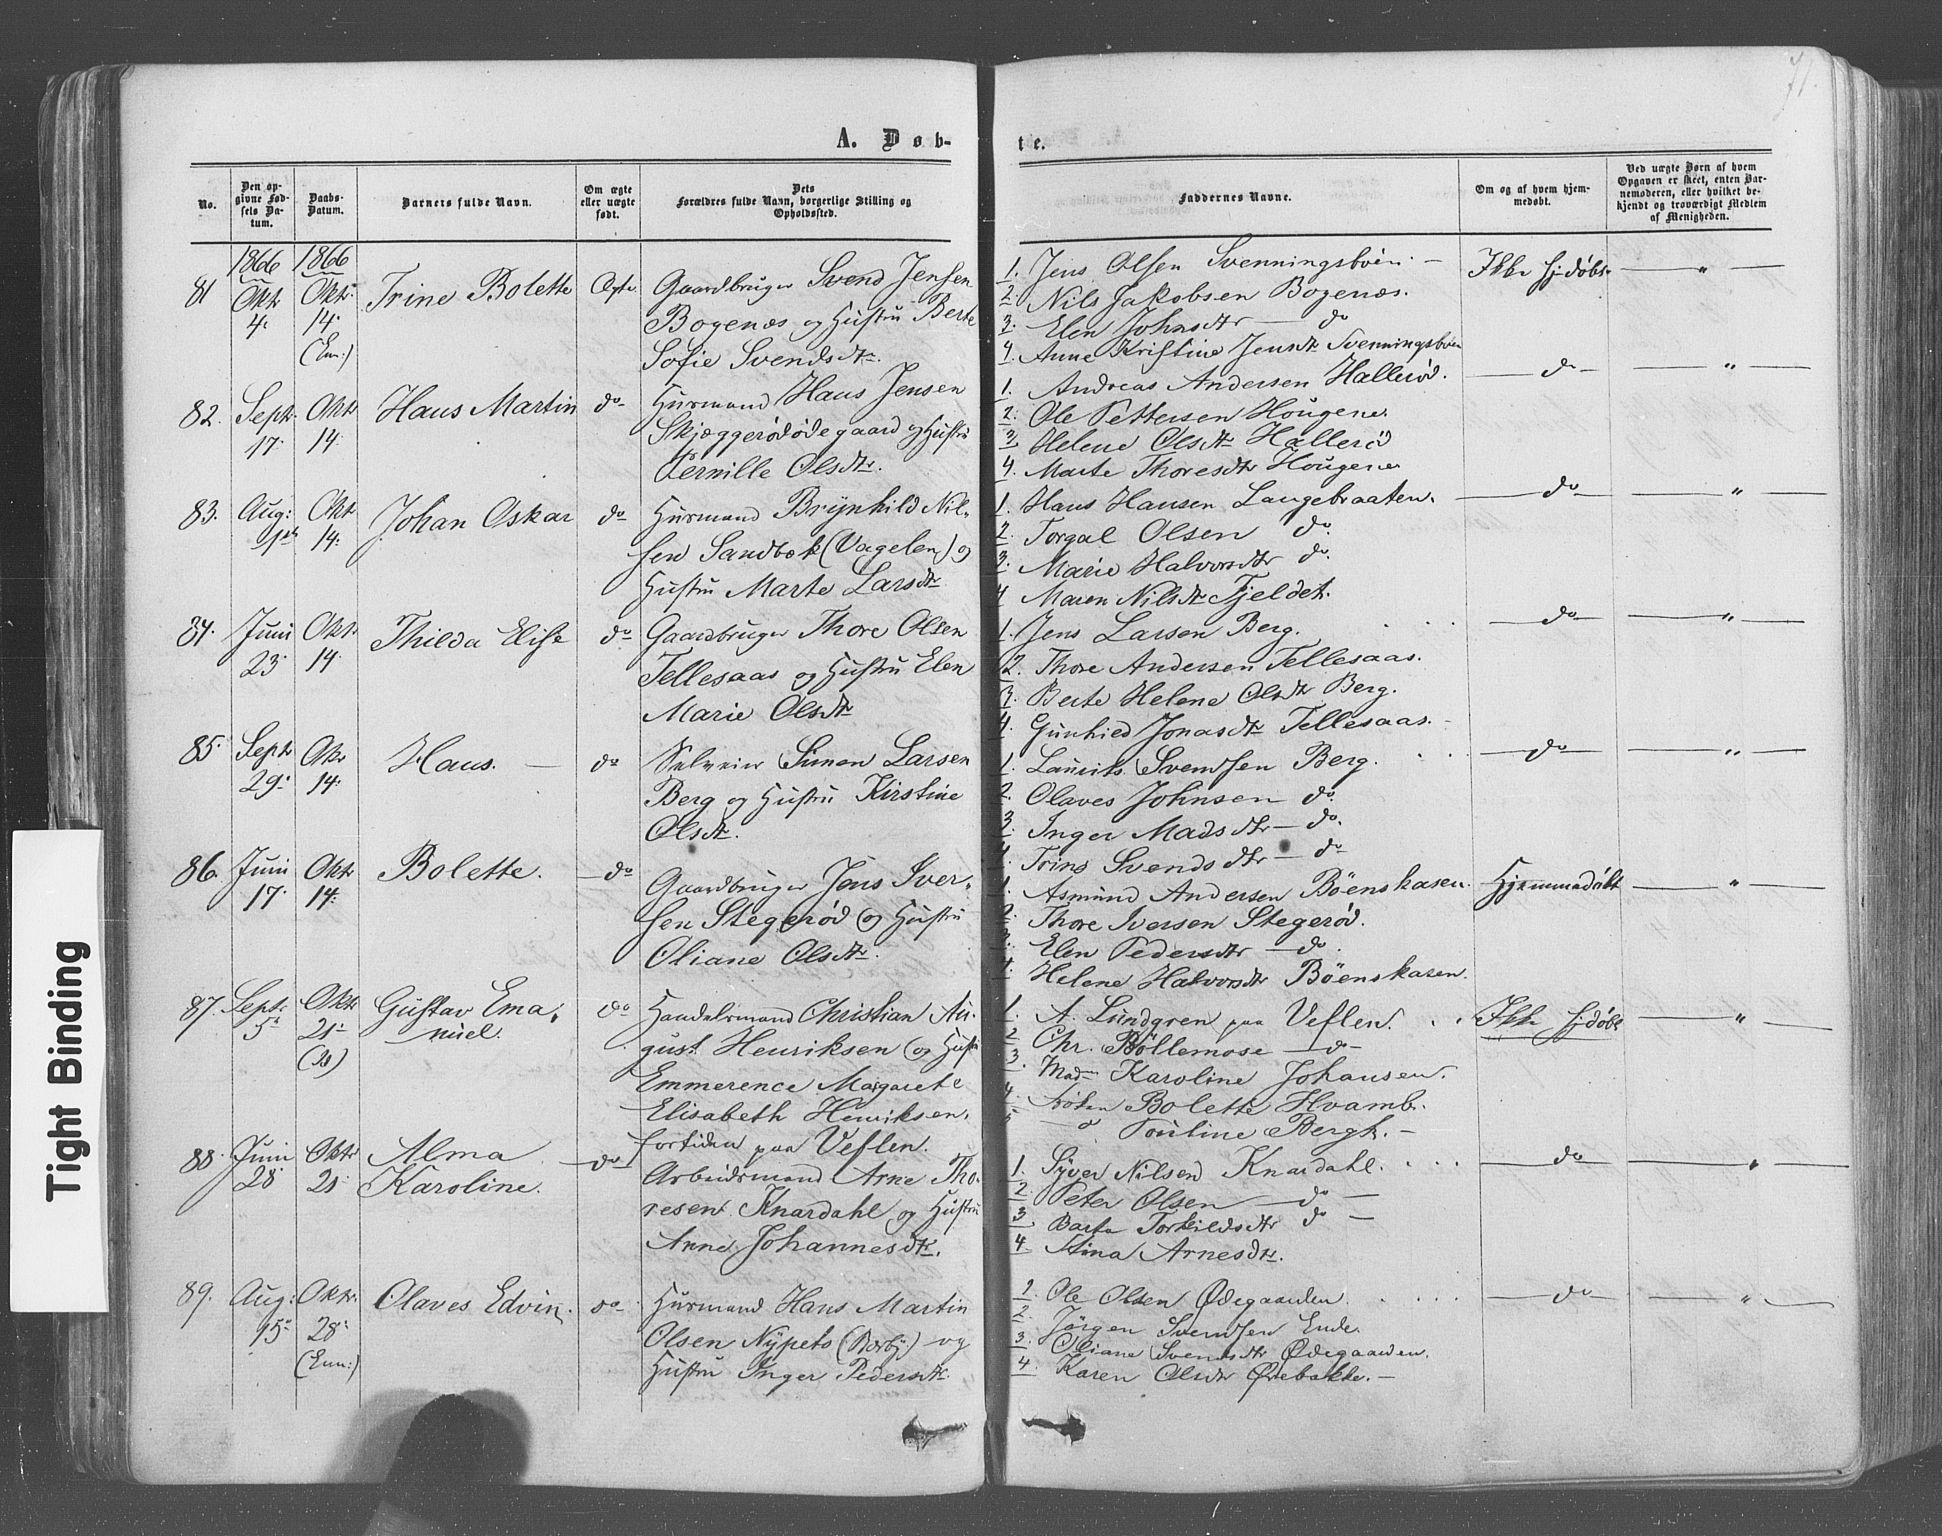 71.
A. Døb-
te.
No.
Den op-
givne Fød-
sels Da-
tum.
Daabs-
Datum.
Barnets fulde Navn.
Om ægte
eller uægte
født.
Dets
Forældres fulde Navn, borgerlige Stilling og
Opholdssted.
Faddernes Navne.
Om og af hvem hjem-
medøbt.
Ved uægte Børn af hvem
Opgaven er skeet, enten Bar-
nemoderen, eller hvilket be-
kjendt og troværdigt Medlem
af Menigheden.
1866 1866
81 Oktr 4. Oktr. 14. (Em:) Trine Bolette Ægte
Gaardbruger Svend Jensen
Bogenæs og Hustru Berte
Sofie Svendsdtr.
1. Jens Olsen Svenningsbøen. –
2. Nils Jakobsen Bogenæs.
3. Elen Johnsdtr — do
4. Anne Kristine Jensdtr Svenningsbøen
Ikke hjdøbt — " —
82. Septr. 17. Oktr 14. Hans Martin do
Husmand Hans Jensen
Skjæggerødødegaard og Hustru
Pernille Olsdtr.
1. Andreas Andersen Hallerød.
2. Ole Pettersen Hougene.
3. Helene Olsdtr Hallerød
4. Marte Thoresdtr Hougene
— do — — " —
83. Aug: Oktr 14. Johan Oskar do
Husmand Brynhild Nil-
sen Sandbæk (Vagelen) og
Hustru Marte Larsdtr
1. Hans Hansen Langebraaten.
2. Torgal Olsen do.
3. Marie Halvorsdtr do.
4 Maren Nilsdtr Fjeldet.
— do — — " —
84. Juni 23. Oktr. 14. Thilda Elise do
Gaardbruger Thore Olsen
Tellesaas og Hustru Elen
Marie Olsdtr
1. Jens Larsen Berg.
2. Thore Andersen Tellesaas.
3. Berte Helene Olsdtr Berg.
4. Gunhild Jonasdtr Tellesaas. –
— do — — " —
85. Septr 29. Oktr 14. Hans. — do
Selveier Simen Larsen
Berg og Hustru Kirstine
Olsdtr.
1. Laurits Svendsen Berg.
2. Olaves Johnsen do.
3. Inger Madsdtr — do.
4. Trine Svendsdtr — do
— do — — " —
86. Juni 17. Oktr 14. Bolette. — do
Gaardbruger Jens Iver-
sen Stegerød og Hustru
Oliane Olsdtr.
1. Asmund Andersen Böenskasen.
2. Thore Iversen Stegerød.
3. Elen Pedersdtr — do.
4. Helene Halvorsdtr Böenskasen.
Hjemmedøbt — " —
87. Septr. 5 Oktr 21 Gustav Ema-
nuel. do
Handelsmand Christian Au-
gust Henriksen og Hustru
Emmerence Margarete
Elisabeth Henriksen,
fortiden paa Veflen.
1. A. Lundgren paa Veflen.
2 Chr. Böllemose — do —
3. Madm Karoline Johansen.
4. Frøken Bolette Hvamb.
5 — do Pouline Bergh. –
Ikke hjdøbt — " —
88. Juni 28. Oktr 21. Alma
Karoline. — do
Arbeidsmand Arne Tho-
resen Knardahl og Hustru
Anne Johannesdtr.
1. Syver Nilsen Knardahl.
2. Peter Olsen — do —
3. Berte Torkildsdtr do —
4. Stina Arnesdtr.
— do — — " —
89. Aug: 15. Oktr. 28. (Em:) Olaves Edvin. do
Husmand Hans Martin
Olsen Nÿpets (Børby) — og
Hustru Inger Pedersdtr.
1. Ole Olsen Ødegaarden.
2. Jörgen Svendsen Ende.
3. Oliane Svendsdtr Ødegaarden.
4. Karen Olsdtr Ørebakke. –
— do — — " —
Tight Binding